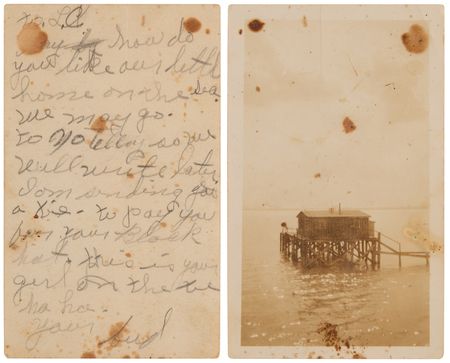 to L.C.
how do
you like our little
home on the sea
we may go.
to no
will write later
I am sending you
a tie - to pay you
for your Black
hat, this is your
girl on the tie
ha ha.
your bud